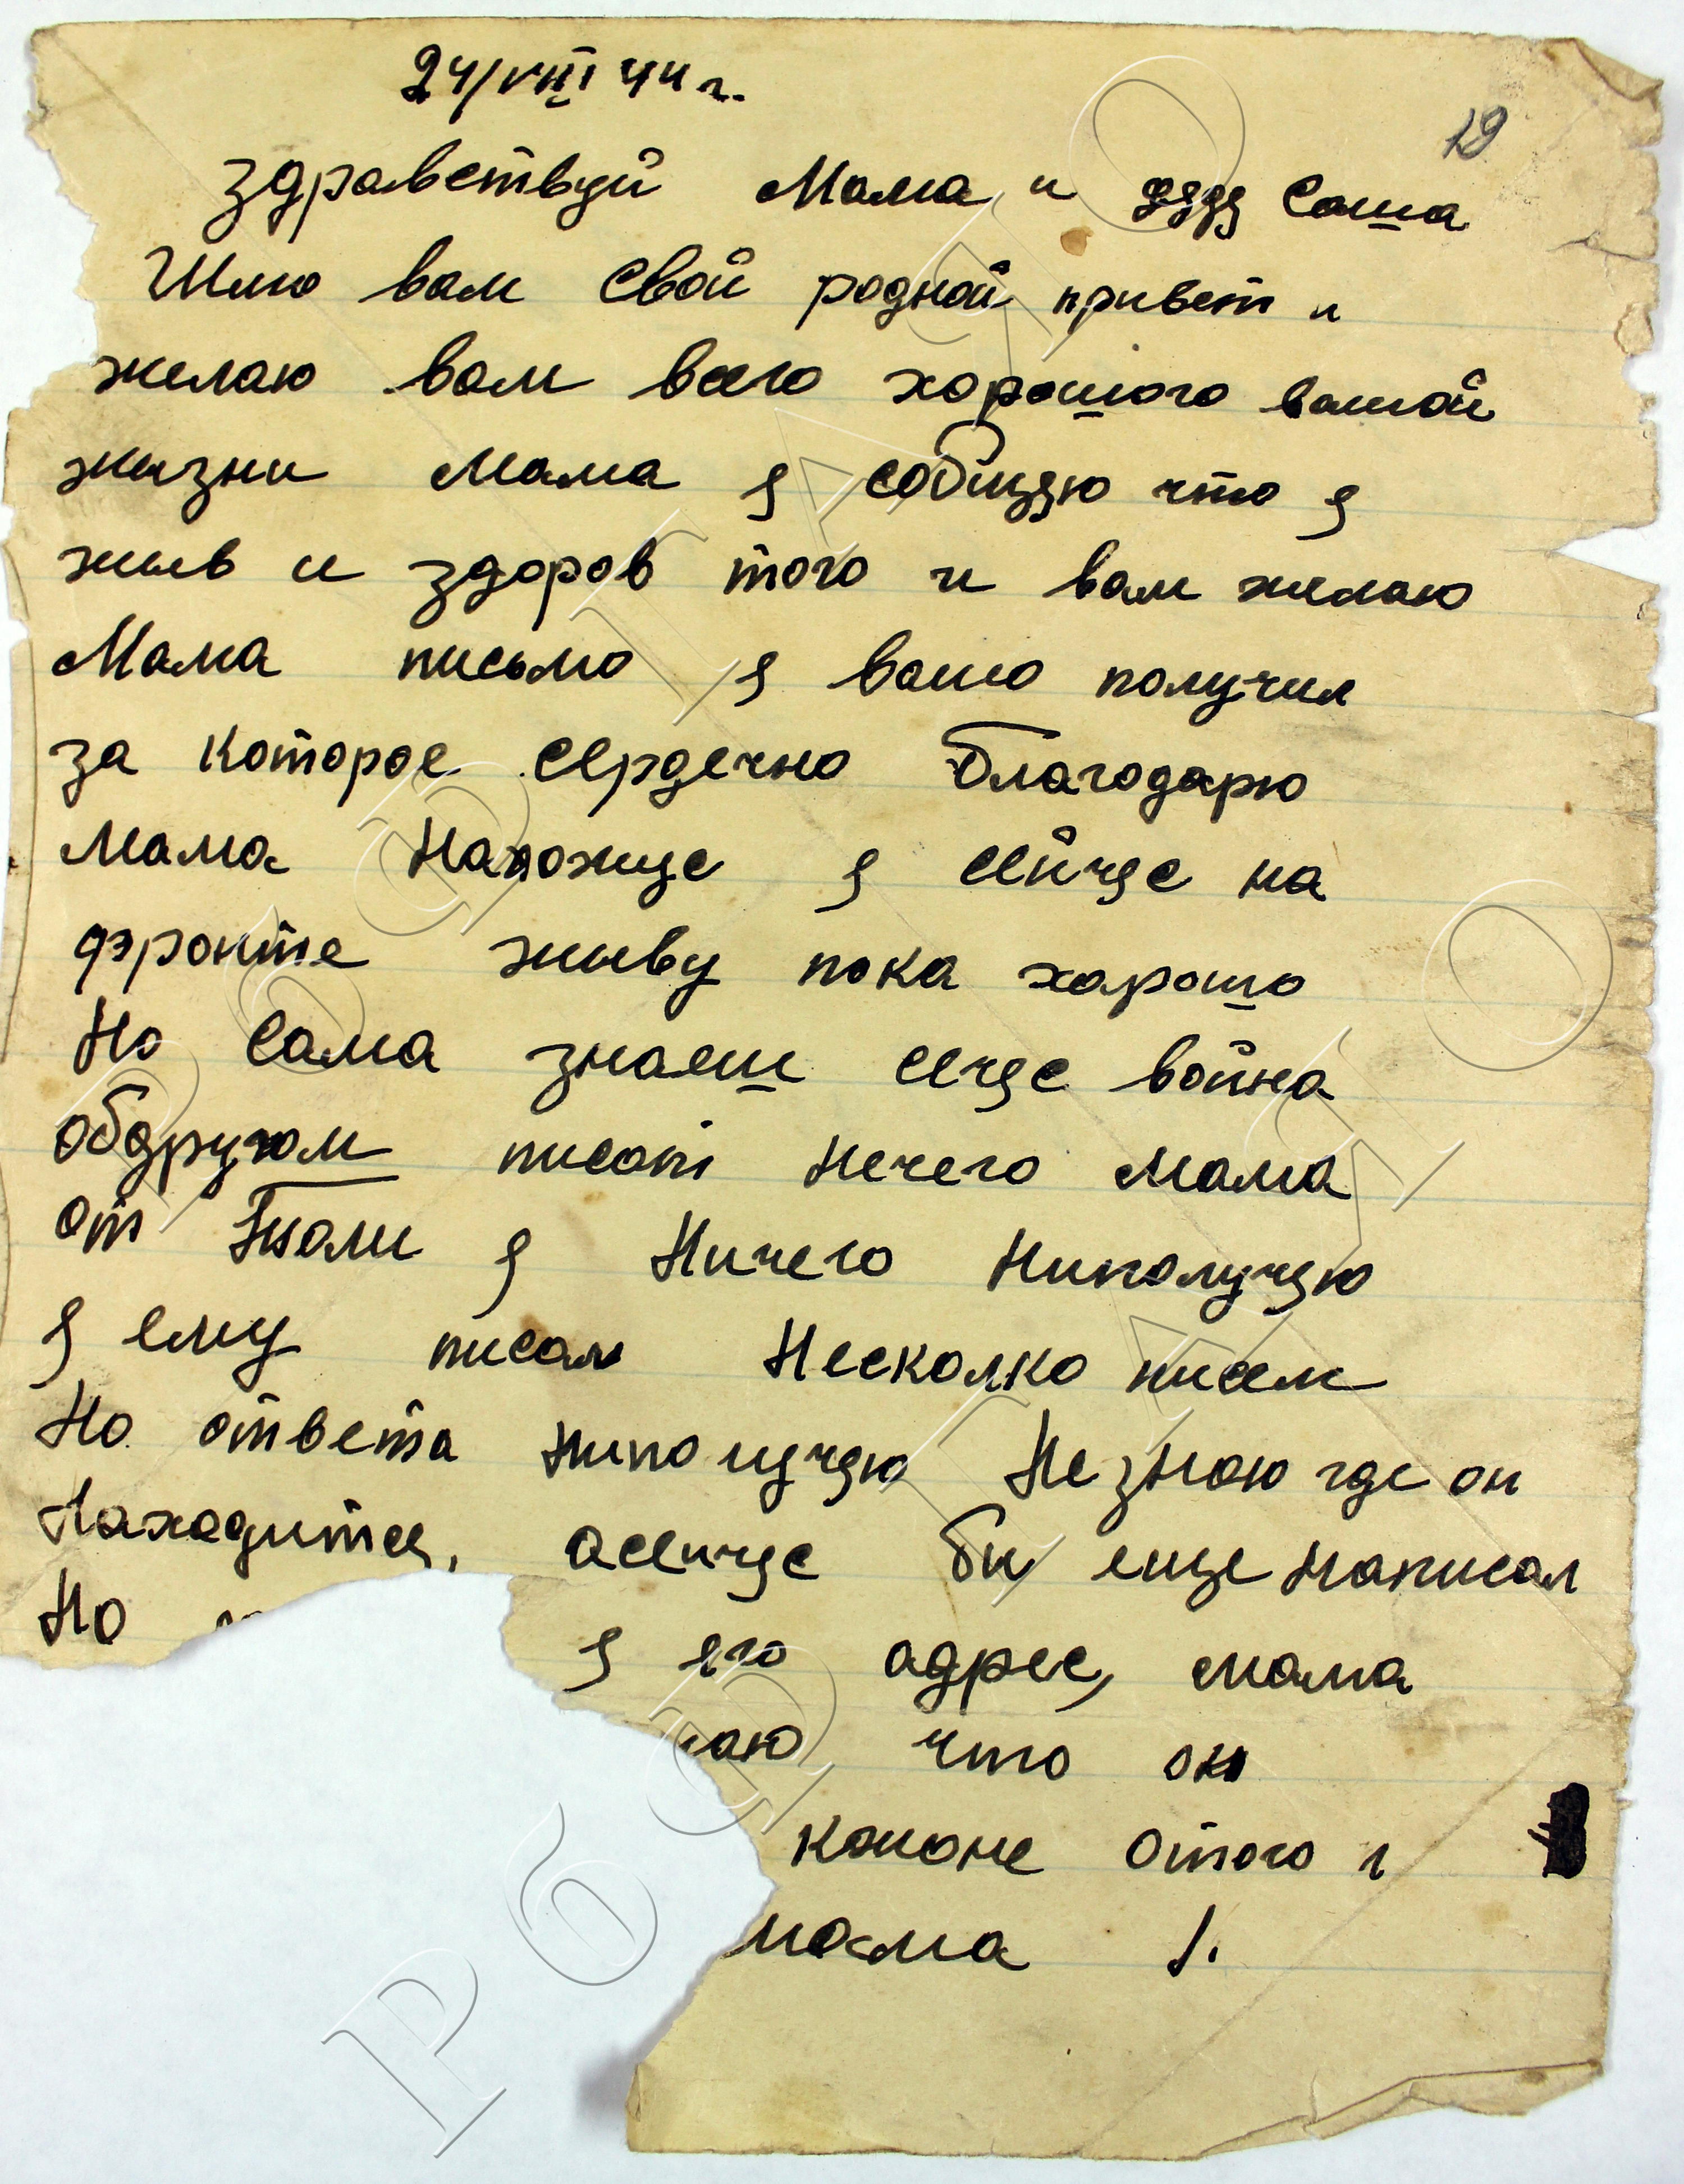 24/VIII 44 г.
19
здравствуй Мама и дядя Саша
Шлю вам Свой родной привет и
желаю вам всего хорошого вашой
жизни Мама я собщяю что я
жыв и здоров того и вам желаю
Мама письмо я вашо получил
за которое сердечно благодарю
Мама Нахожус я сейчяс на
фронте жыву пока хорошо
Но Сама знаеш сечяс война
обдругом писат Нечего Мама
от я Ничего Ниполучяю
я ему писал Несколко писем
Но ответа Ниполучяю Не знаю где он
Находится, асеичяс би еще Написал
Но я его адрес, мама
аю что он
мама